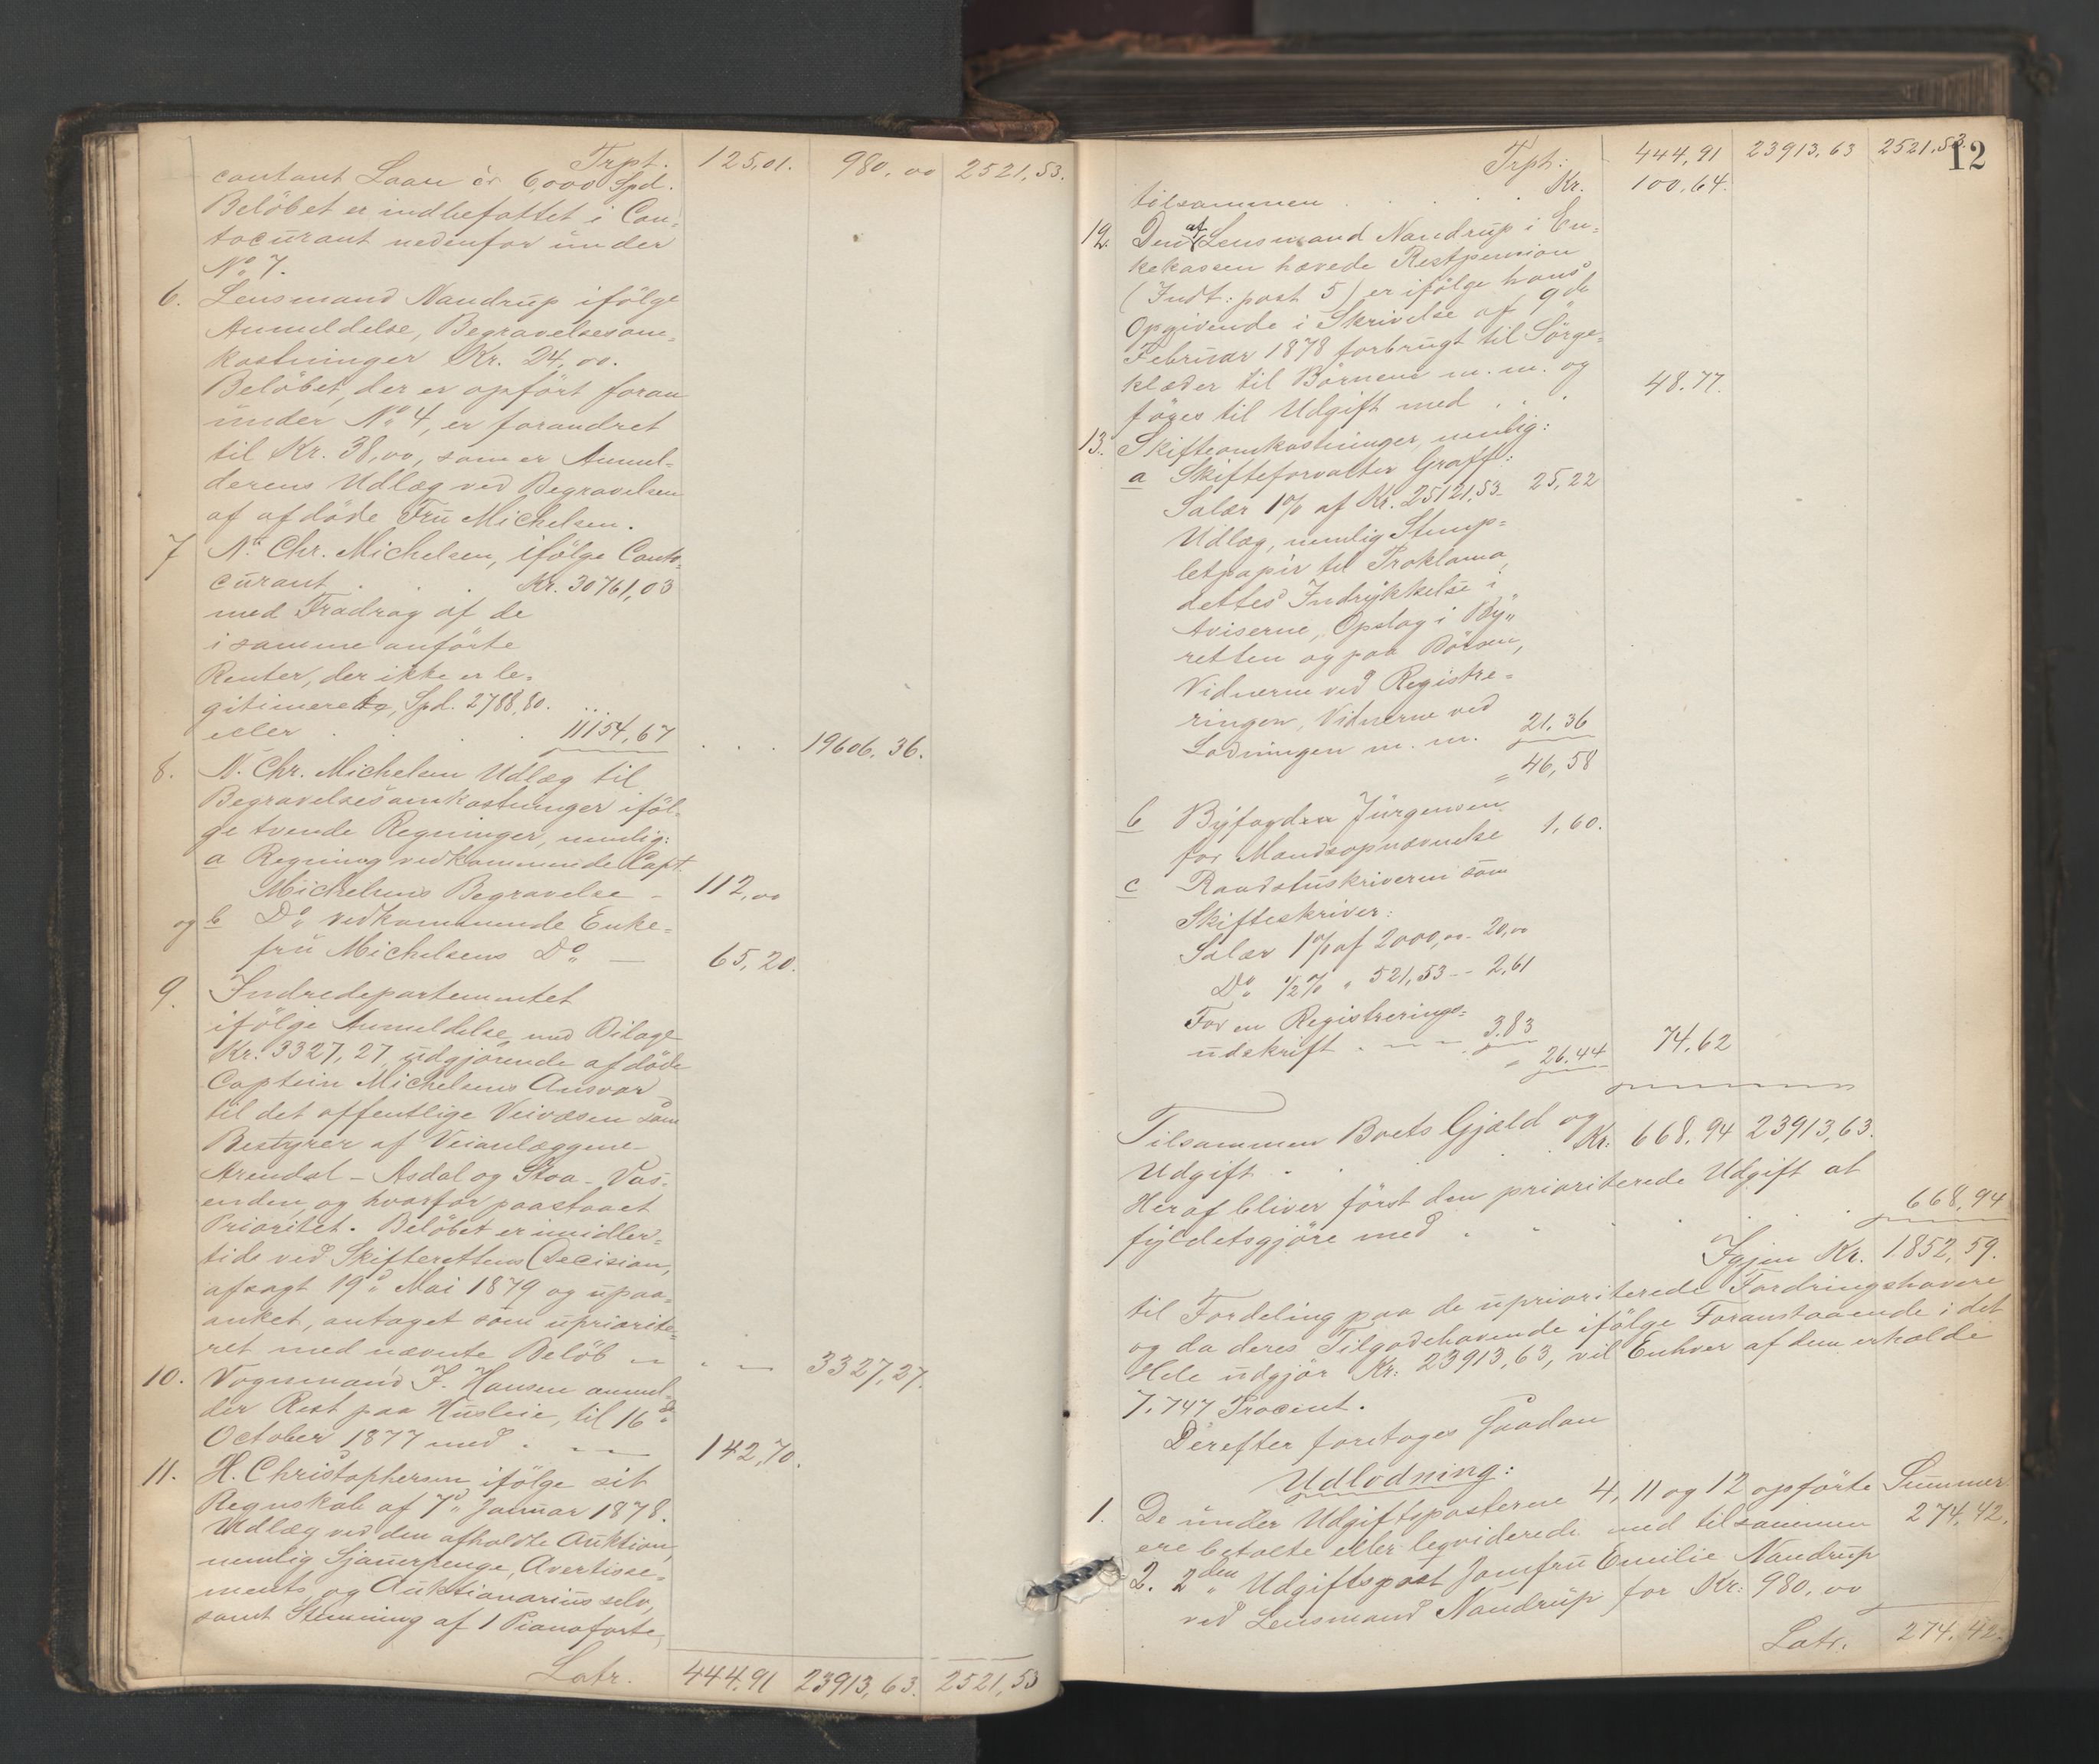 Trpt. 125,01. 980,00 2521,53.
contant Laan à 6,000 Spd.
Belöbet er indbefattet i Con-
tocurant nedenfor under
No 7.
6. Lensmand Nandrup ifölge
Anmeldelse, Begravelsesom-
kostninger Kr. 24,00.
Belöbet, der er opfört foran
under No 4, er forandret
til Kr. 38,00, som er Anmel-
derens Udlæg ved Begravelsen
af afdöde Frü Michelsen.
7 N. Chr. Michelsen, ifölge Conto-
curant . . . Kr. 30761,03
med Fradrag af de
i samme anförte
Renter, der ikke er le-
gitimerede, Spd. 2788,80.
eller . . . . 11154,67 . . . 19606,36.
8. N. Chr. Michelsen Udlæg til
Begravelsesomkostninger iföl-
ge tvende Regninger, nemlig:
a Regning vedkommende Capt.
Michelsens Begravelse - 112,00
og b Do vedkommende Enke-
frü Michelsens Do — 65,20.
9. Indredepartementet
ifölge Anmeldelse med Bilage
Kr. 3327,27, udgjörende afdöde
Captein Michelsens Ansvar
til det offentlige Veivæsen som
Bestyrer af Veianlæggene
Arendal - Asdal og Stoa - Vas-
enden, og hvorfor paastaaet
Prioritet. Belöbet er imidler-
tid ved Skifterettens Decision,
afsagt 19d Mai 1879 og upaa-
anket, antaget som upriorite-
ret med nævnte Belöb — - — 3327,27.
10. Vogmmand J. Hansen anmel-
der Rest paa Husleie, til 16d
October 1877 med . - — 142,70.
11. H. Christophersen ifölge sit
Regnskab af 7d Januar 1878.
Udlæg ved den afholdte Auktion,
nemlig Sjauerpenge, Avertisse-
ments og Auktionarius selv,
samt Stemning af 1 Pianoforte,
Latr. 444,91 23913,63. 2521,53
12
Trpt: 444,91 23913,63 2521,53.
tilsammen . . . . . Kr. 100,64.
12. Den af Lensmand Nandrup i En-
kekassen hævede Restpension
(Indt: post 5) er ifölge hans
Opgivende i Skrivelse af 9de
Februar 1878 forbrugt til Sörge-
klæder til Börnene m. m. og
föres til Udgift med . . . 48.77.
13. Skifteomkostninger, nemlig:
a Skifteforvalter Graff:
Salær 1% af Kr. 25121,53. 25,22
Udlæg, nemlig Stemp-
letpapir til Proklama,
dettes Indrykkelse i
Aviserne, Opslag i By-
retten og paa Börsen,
Vidnerne ved Registre-
ringen, Vidnerne ved
Lodningen m. m. 21,36
= 46,58
b Byfogden Jürgensen
for Mandsopnævnelse 1,60.
c Raadstuskriveren som
Skifteskriver:
Salær 1% af 2000,00 - 20,00
Do 1/2% " 521,53 - - 2,61
For en Registrerings-
udskrift . - — - 3,83
" 26,44 74,62
Tilsammen Boets Gjæld og
Udgift . . . . . Kr: 668,94 23913,63.
Heraf bliver först den prioriterede Udgift at
fyldetsgjöre med . . . . . 668,94
Igjen Kr. 1.852,59.
til Fordeling paa de uprioriterede Fordringshavere
og da deres Tilgodehavende ifölge Foranstaaende i det
Hele udgjör Kr: 23913,63, vil Enhver af dem erholde
7.747 Procent.
Derefter foretages saadan
Udlodning:
1. De under Udgiftsposterne 4, 11 og 12 opförte Summer
ere betalte eller leqviderede med tilsammen 274,42.
2. 2den Udgiftspost Jomfru Emilie Nandrup
ved Lensmand Nandrup for Kr: 980,00
Latr. 274,42.